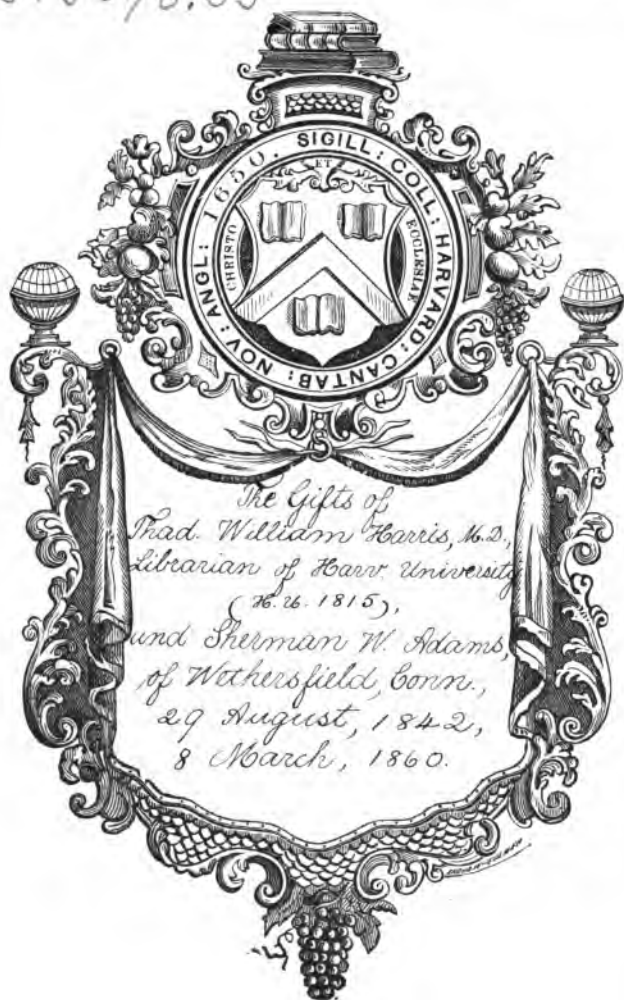 SIGILL : COLL : HARVARD : CANTAB : NOV : ANGL : 1650.
CHRISTO
ET
ECCLESIAE
The Gifts of
Thad. William Harris, M.D.,
Librarian of Harv. University
(H. U. 1815),
und Sherman W. Adams,
of Wethersfield, Conn.,
29 August, 1842,
8 March, 1860.